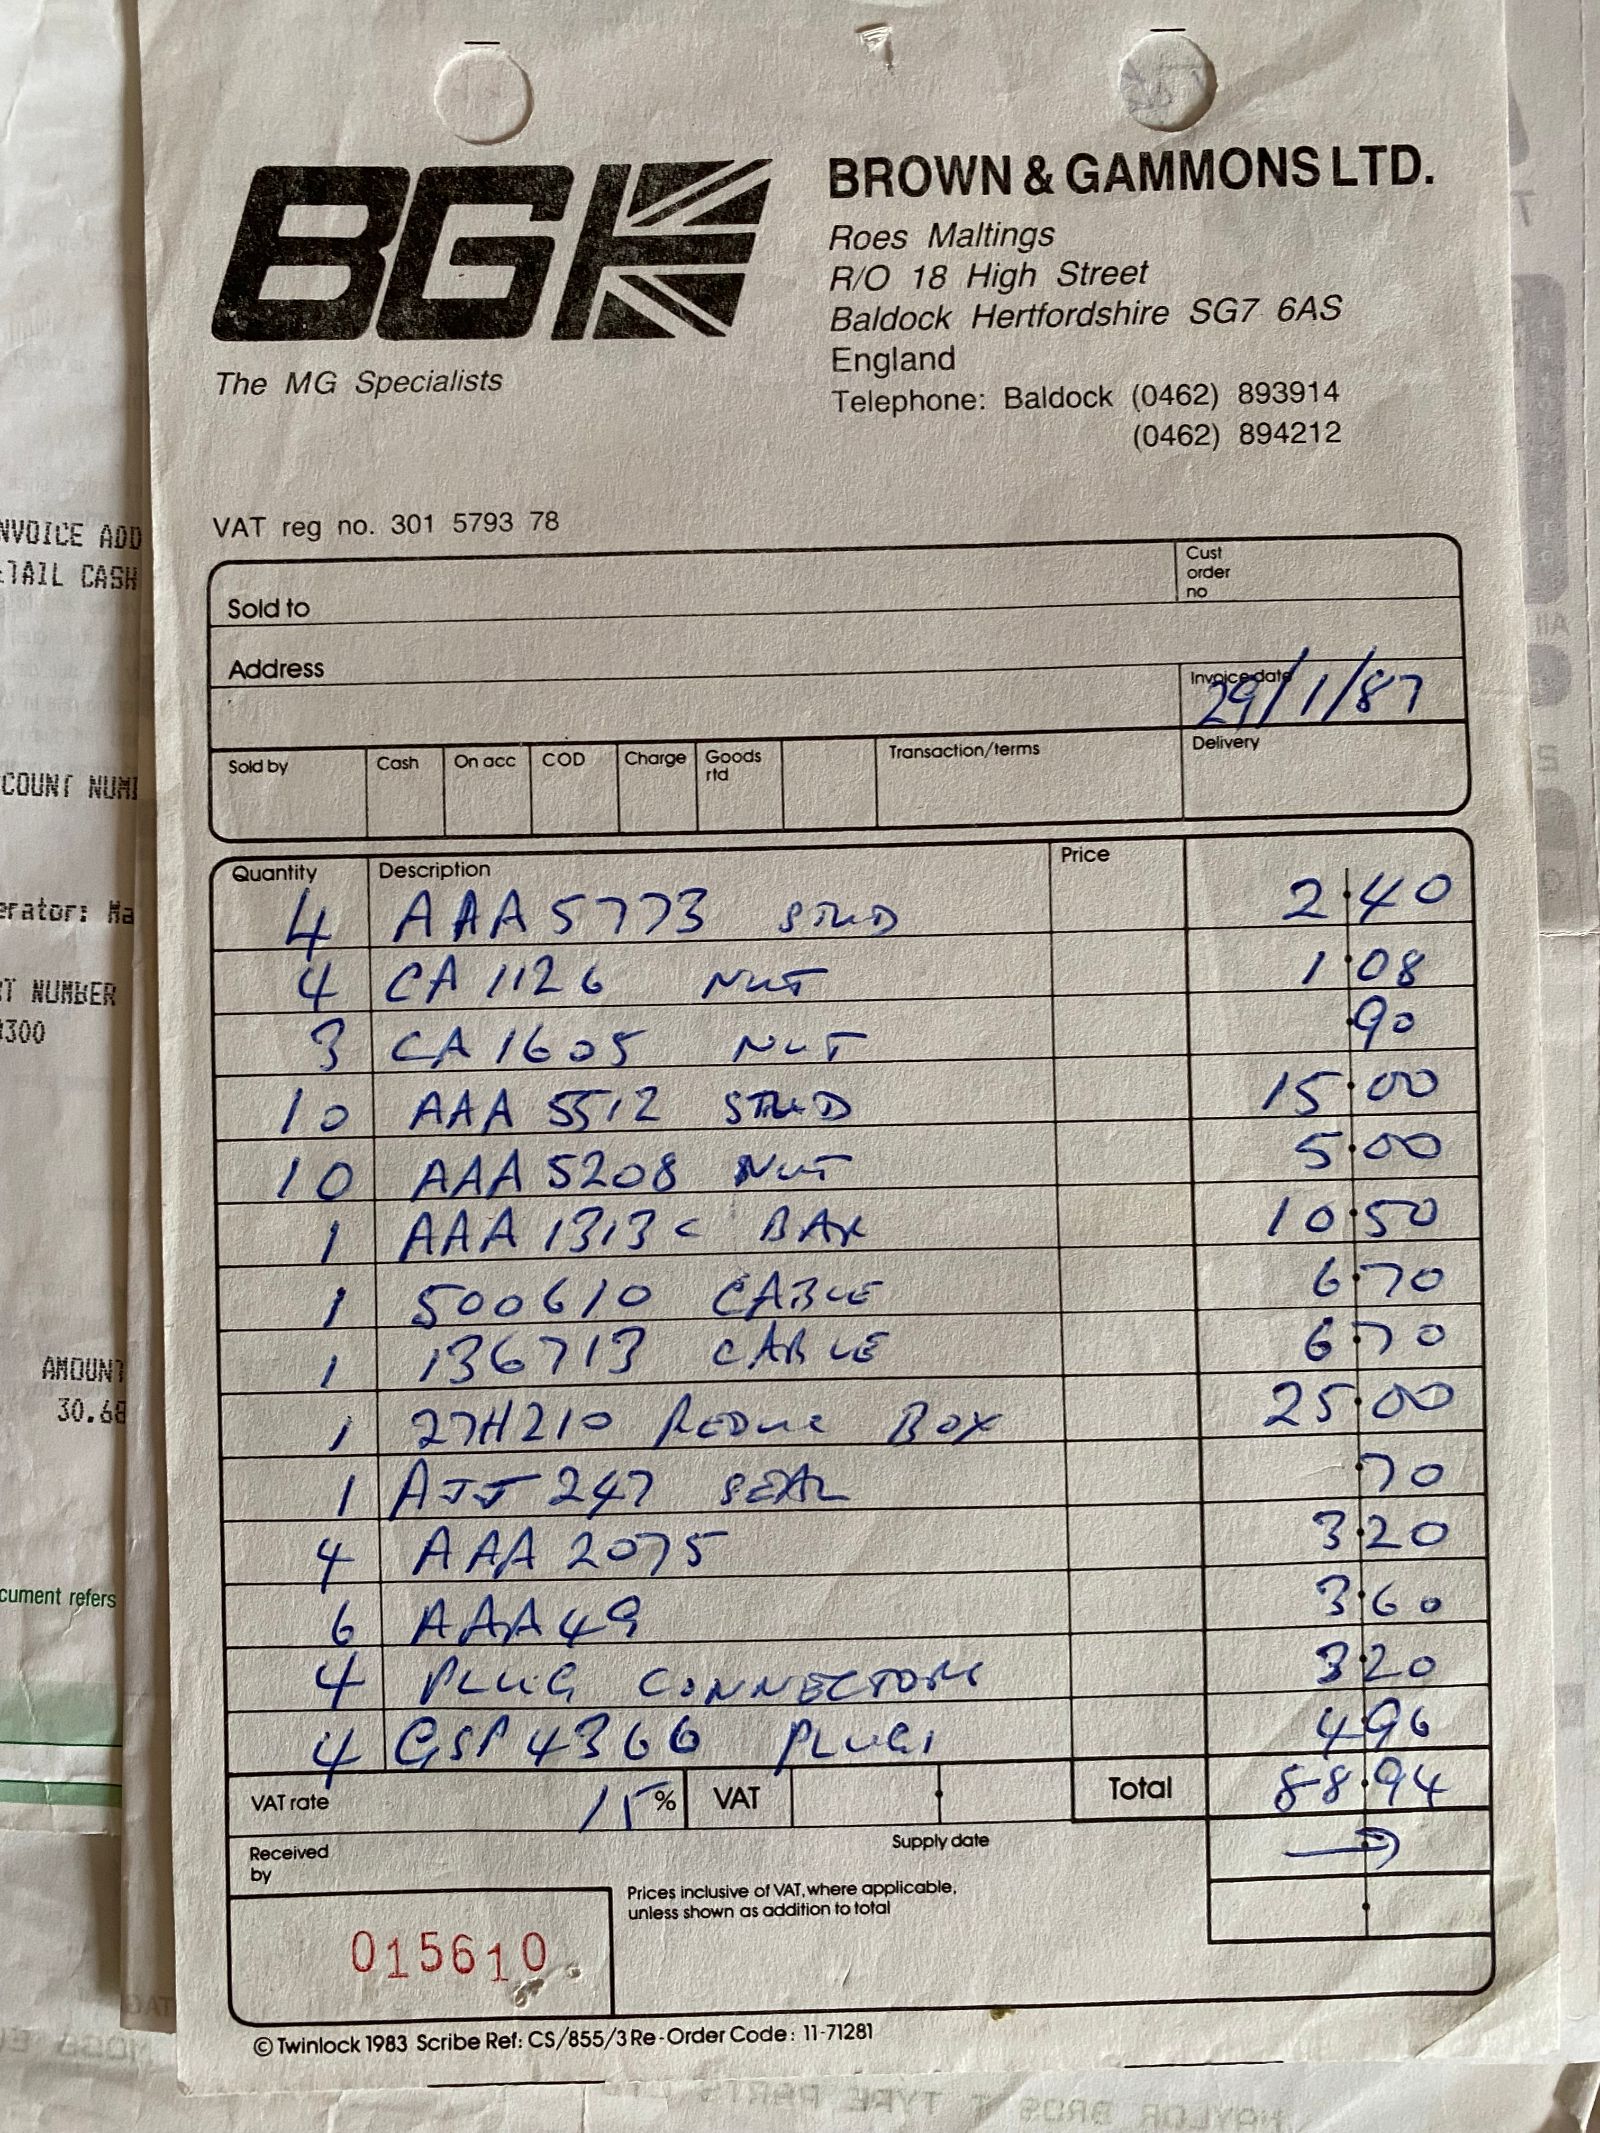 BGK
The MG Specialists
BROWN & GAMMONS LTD.
Roes Maltings
R/O 18 High Street
Baldock Hertfordshire SG7 6AS
England
Telephone: Baldock (0462) 893914
(0462) 894212
VAT reg no. 301 5793 78
Sold to
Cust order no
Address
Invoice date 29/1/87
Sold by Cash On acc COD Charge Goods rtd Transaction/terms Delivery
Quantity Description Price
4 AAA 5773 STUD 2.40
4 CA 1126 NUT 1.08
3 CA 1605 NUT .90
10 AAA 5512 STUD 15.00
10 AAA 5208 NUT 5.00
1 AAA 1313 C BAR 10.50
1 500610 CABLE 6.70
1 136713 CABLE 6.70
1 27H210 BOX 25.00
1 AJJ 247 SEAL .70
4 AAA 2075 3.20
6 AAA 49 3.60
4 PLUG CONNECTORS 3.20
4 GSP 4366 PLUGS 4.96
VAT rate 15% VAT Total 88.94
Received by
Supply date
Prices inclusive of VAT, where applicable,
unless shown as addition to total
015610
© Twinlock 1983 Scribe Ref: CS/855/3 Re-Order Code: 11-71281
NVOICE ADD
TAIL CASH
COUNT NUM
erator: Ma
T NUMBER
300
AMOUNT
30.68
cument refers